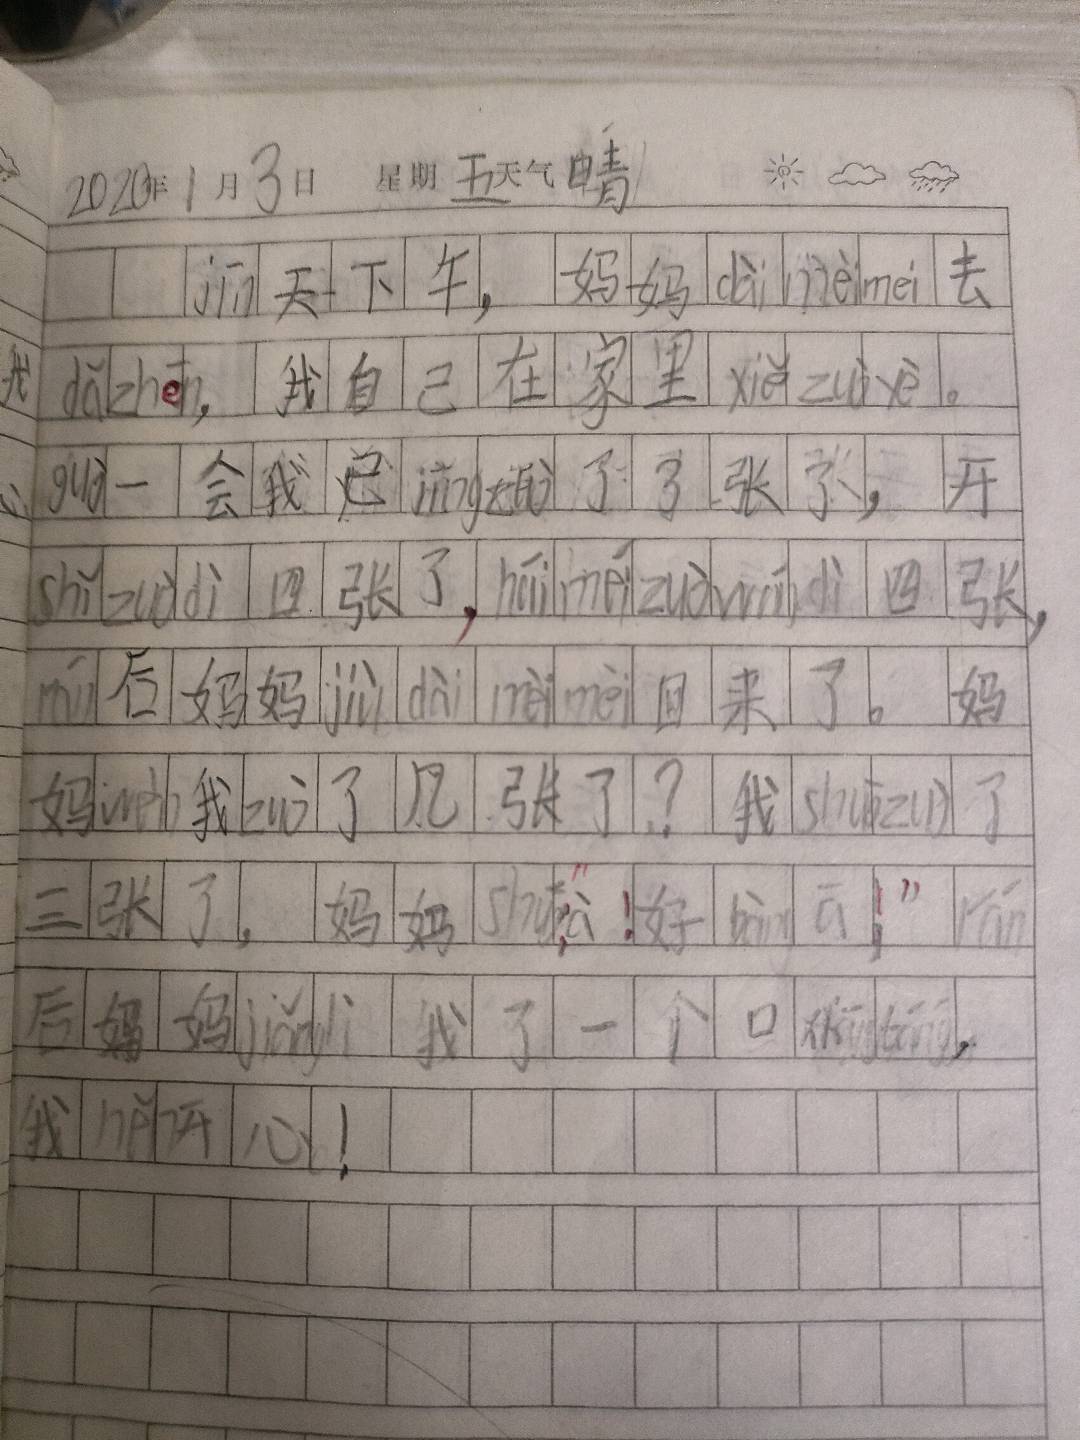 2020年1月3日 星期五天气晴
jīn天下午，妈妈dài mèimei去
dǎzhēn，我自己在家里xiězuòyè。
guò一会我已jīngzuò了了张了，开
shǐzuòdì四张了，háiméizuòwándì四张，
rán后妈妈jiùdàimèimèi回来了。妈
妈wèn我zuò了几张了？我shuōzuò了
三张了，妈妈shuō：“à！好bàngā！”rán
后妈妈jiǎnglì我了一个口xiāngtáng，
我hěn开心！
我